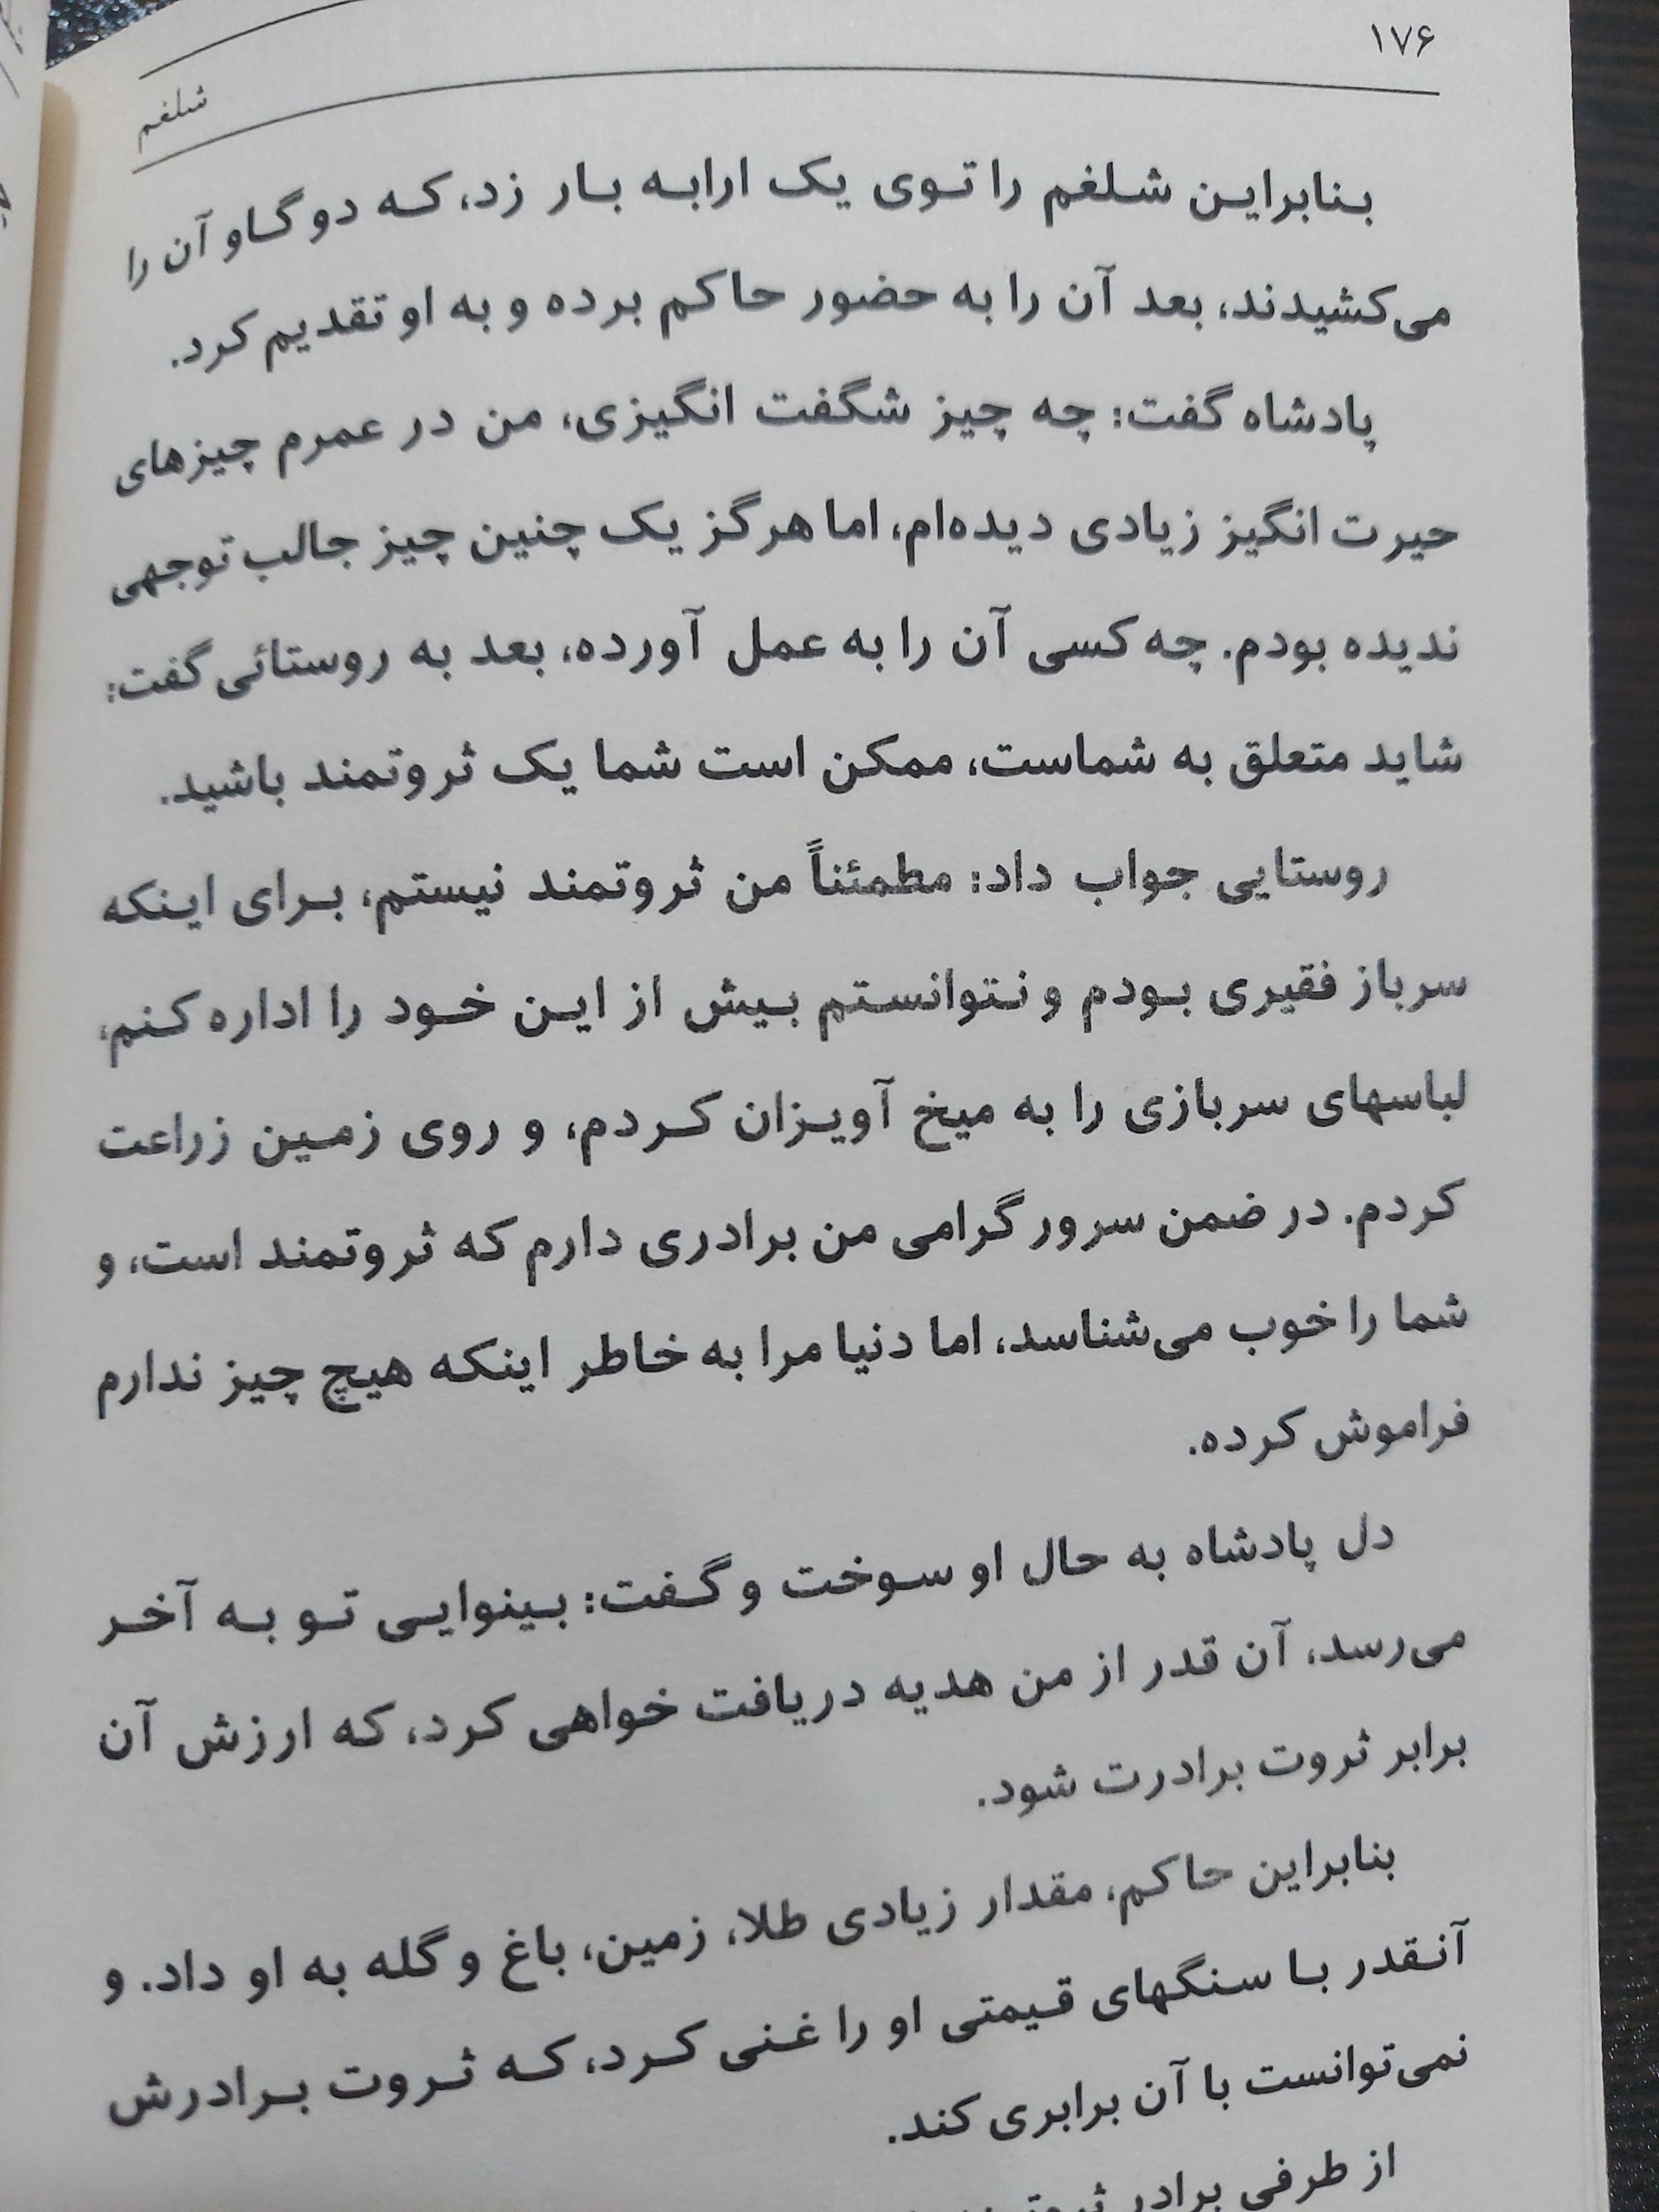 ۱۷۶
شلغم
بنابراین شلغم را توی یک ارابه بار زد، که دو گاو آن را
می‌کشیدند، بعد آن را به حضور حاکم برده و به او تقدیم کرد.
پادشاه گفت: چه چیز شگفت انگیزی، من در عمرم چیزهای
حیرت انگیز زیادی دیده‌ام، اما هرگز یک چنین چیز جالب توجهی
ندیده بودم. چه کسی آن را به عمل آورده، بعد به روستائی گفت:
شاید متعلق به شماست، ممکن است شما یک ثروتمند باشید.
روستایی جواب داد: مطمئناً من ثروتمند نیستم، برای اینکه
سرباز فقیری بودم و نتوانستم بیش از این خود را اداره کنم،
لباسهای سربازی را به میخ آویزان کردم، و روی زمین زراعت
کردم. در ضمن سرور گرامی من برادری دارم که ثروتمند است، و
شما را خوب می‌شناسد، اما دنیا مرا به خاطر اینکه هیچ چیز ندارم
فراموش کرده.
دل پادشاه به حال او سوخت و گفت: بینوایی تو به آخر
می‌رسد، آن قدر از من هدیه دریافت خواهی کرد، که ارزش آن
برابر ثروت برادرت شود.
بنابراین حاکم، مقدار زیادی طلا، زمین، باغ و گله به او داد. و
آنقدر با سنگهای قیمتی او را غنی کرد، که ثروت برادرش
نمی‌توانست با آن برابری کند.
از طرفی برادر